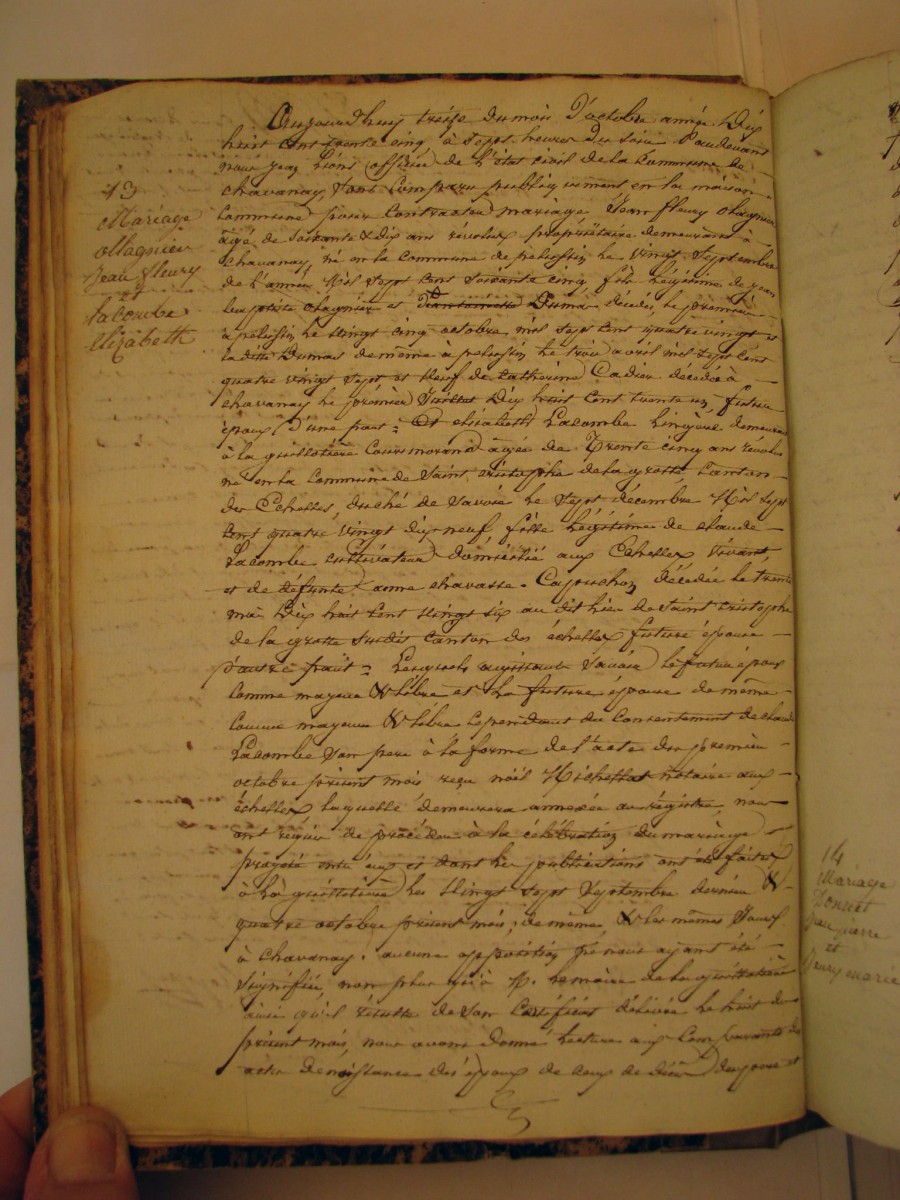 13
Mariage
ollagnier
Jean fleury
et
lacombe
Elizabeth
Aujourd'huy treize du mois D'octobre année Dix
huit cent trente cinq, à Sept heures du Soir Pardevant
nous Jean officier de L'état civil de la Commune de
chavanay, Sont Comparu publiquement en la maison
Commune pour Contracter mariage, Jean fleury olagnier
agé de Soixante & dix ans révolus propriétaire demeurant à
chavanay, né en la commune de pelussin le vingt Septembre
de L'année Mil Sept Cent Soixante cinq fils Légitime de jean
baptiste olagnier et Dumas décédés, le premier
à pelussin le vingt cinq octobre mil sept cent quatre vingt
la ditte Dumas de même à pelussin le trois avril mil sept cent
quatre vingt sept et veuf de catherine Cadier décédée à
chavanay le premier Juillet Dix huit cent trente un, futur
époux d'une part = Et elisabeth Lacombe Lingère demeurant
à la guillotière Cours morand agée de Trente cinq ans révolus
né en la Commune de Saint cristophe de la grotte, Canton
des Echelles, duché de Savoie le Sept décembre Mil Sept
Cent quatre vingt dix neuf fille Légitime de claude
Lacombe cultivateur domicilié aux Echelles vivant,
et de défunte anne chavasse - Capuchon décédée le trente
mai Dix huit Cent vingt six au dit lieu de Saint cristophe
de la grotte Susdit canton des échelles future épouse
D'autre part = Lesquels agissants Savoir le futur époux
comme mayeur & libre et la future épouse de même
comme mayeure & libre cependant du Consentement de claude
Lacombe Son pere à la forme de l'acte du premier
octobre présent mois reçu notaire aux
échelles laquelle demeurera annexée au régistre, nous
ont réquis de procéder à la célébration du mariage
projeté entre eux et dont les publications ont été faites
à La guillotière les vingt Sept Septembre dernier &
quatre octobre présent mois; de même, & les mêmes Jours
à chavanay. aucune opposition ne nous ayant été
Signifiée, non plus qu'à M. le maire de la guillotière
ainsi qu'il résulte de Son Certificat délivré le huit du
présent mois, nous avons donné lecture aux Comparants des
actes de naissance des époux de ceux de décès du pere et
14
Mariage
Jean pierre
et
marie